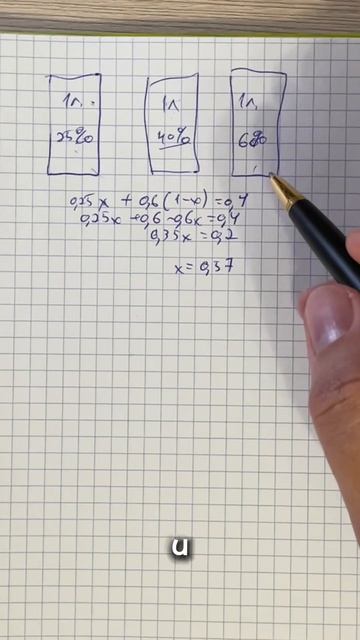 1л. 1л 1л.
25% 40% 60%
0,25x + 0,6(1-x) = 0,4
0,25x + 0,6 - 0,6x = 0,4
0,35x = 0,2
x = 0,57
и